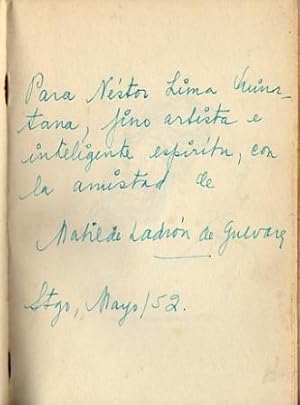 Para Néstor Lima Quins-
tana, fino artista e
inteligente espíritu, con
la amistad de
Matilde Ladrón de Guevara
Stgo, Mayo/52.